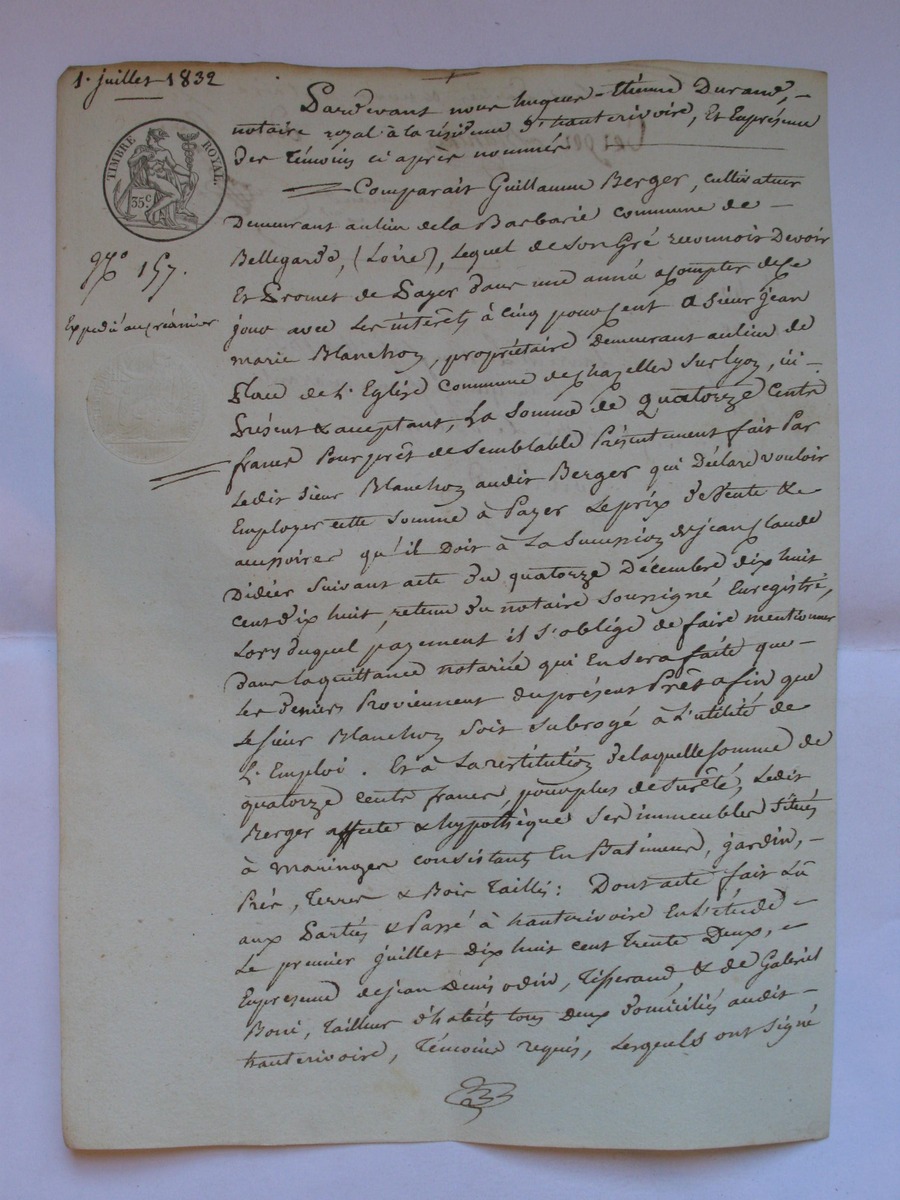 1. juillet 1832
Pardevant nous hugues-Etienne Durand,
notaire royal à la résidence d'hauterivoire, Et Enprésence
des témoins ci après nommés
Comparait Guillaume Berger, cultivateur
Demeurant aulieu dela Barbarie commune de
Bellegarde, (Loire), lequel de son Gré reconnoit Devoir
Et Promet de Payer dans une année acompter de Ce
jour avec Les intérêts à Cinq pour Cent a sieur jean
marie Blanchon, propriétaire Demeurant aulieu de
Place de l'Eglise Commune de chazelles Sur lyon, ici
Présent & acceptant, La Somme de Quatorze Cents
francs Pour prêt de Semblable Présentement fait Par
Ledit Sieur Blanchon audit Berger qui Déclare vouloir
Employer cette Somme à Payer Le prix de Vente &
qu'il Doit à La Succession de jean Claude
Didier Suivant acte du quatorze Décembre dix huit
cent dix huit, retenu du notaire Soussigné Enregistré,
Lors duquel payement il s'oblige de faire mentionner
dans la quittance notariée qui En Sera faite que
Les deniers Proviennent du présent Prêt afin que
Le sieur Blanchon Soit Subrogé à L'utilité de
L'Emploi. Et à La restitution de laquelle somme de
quatorze cents francs, pour plus de Sureté, Ledit
Berger affecte & hypothèque Ses immeubles Situés
à Maringes consistants En Batiments, jardin,
Prés, Terres & Bois Taillis: Dont acte fait Lû
aux Parties & Passé à hauterivoire En L'étude
Le premier juillet Dix huit cent Trente Deux,
Enprésence de jean Denis odin, Tisserand & de Gabriel
Boni, Tailleur d'habits tous Deux domiciliés audit
hauterivoire, Témoins requis, Lesquels ont signé
TIMBRE ROYAL.
35 c.
N.° 157.
Expédié au créancier